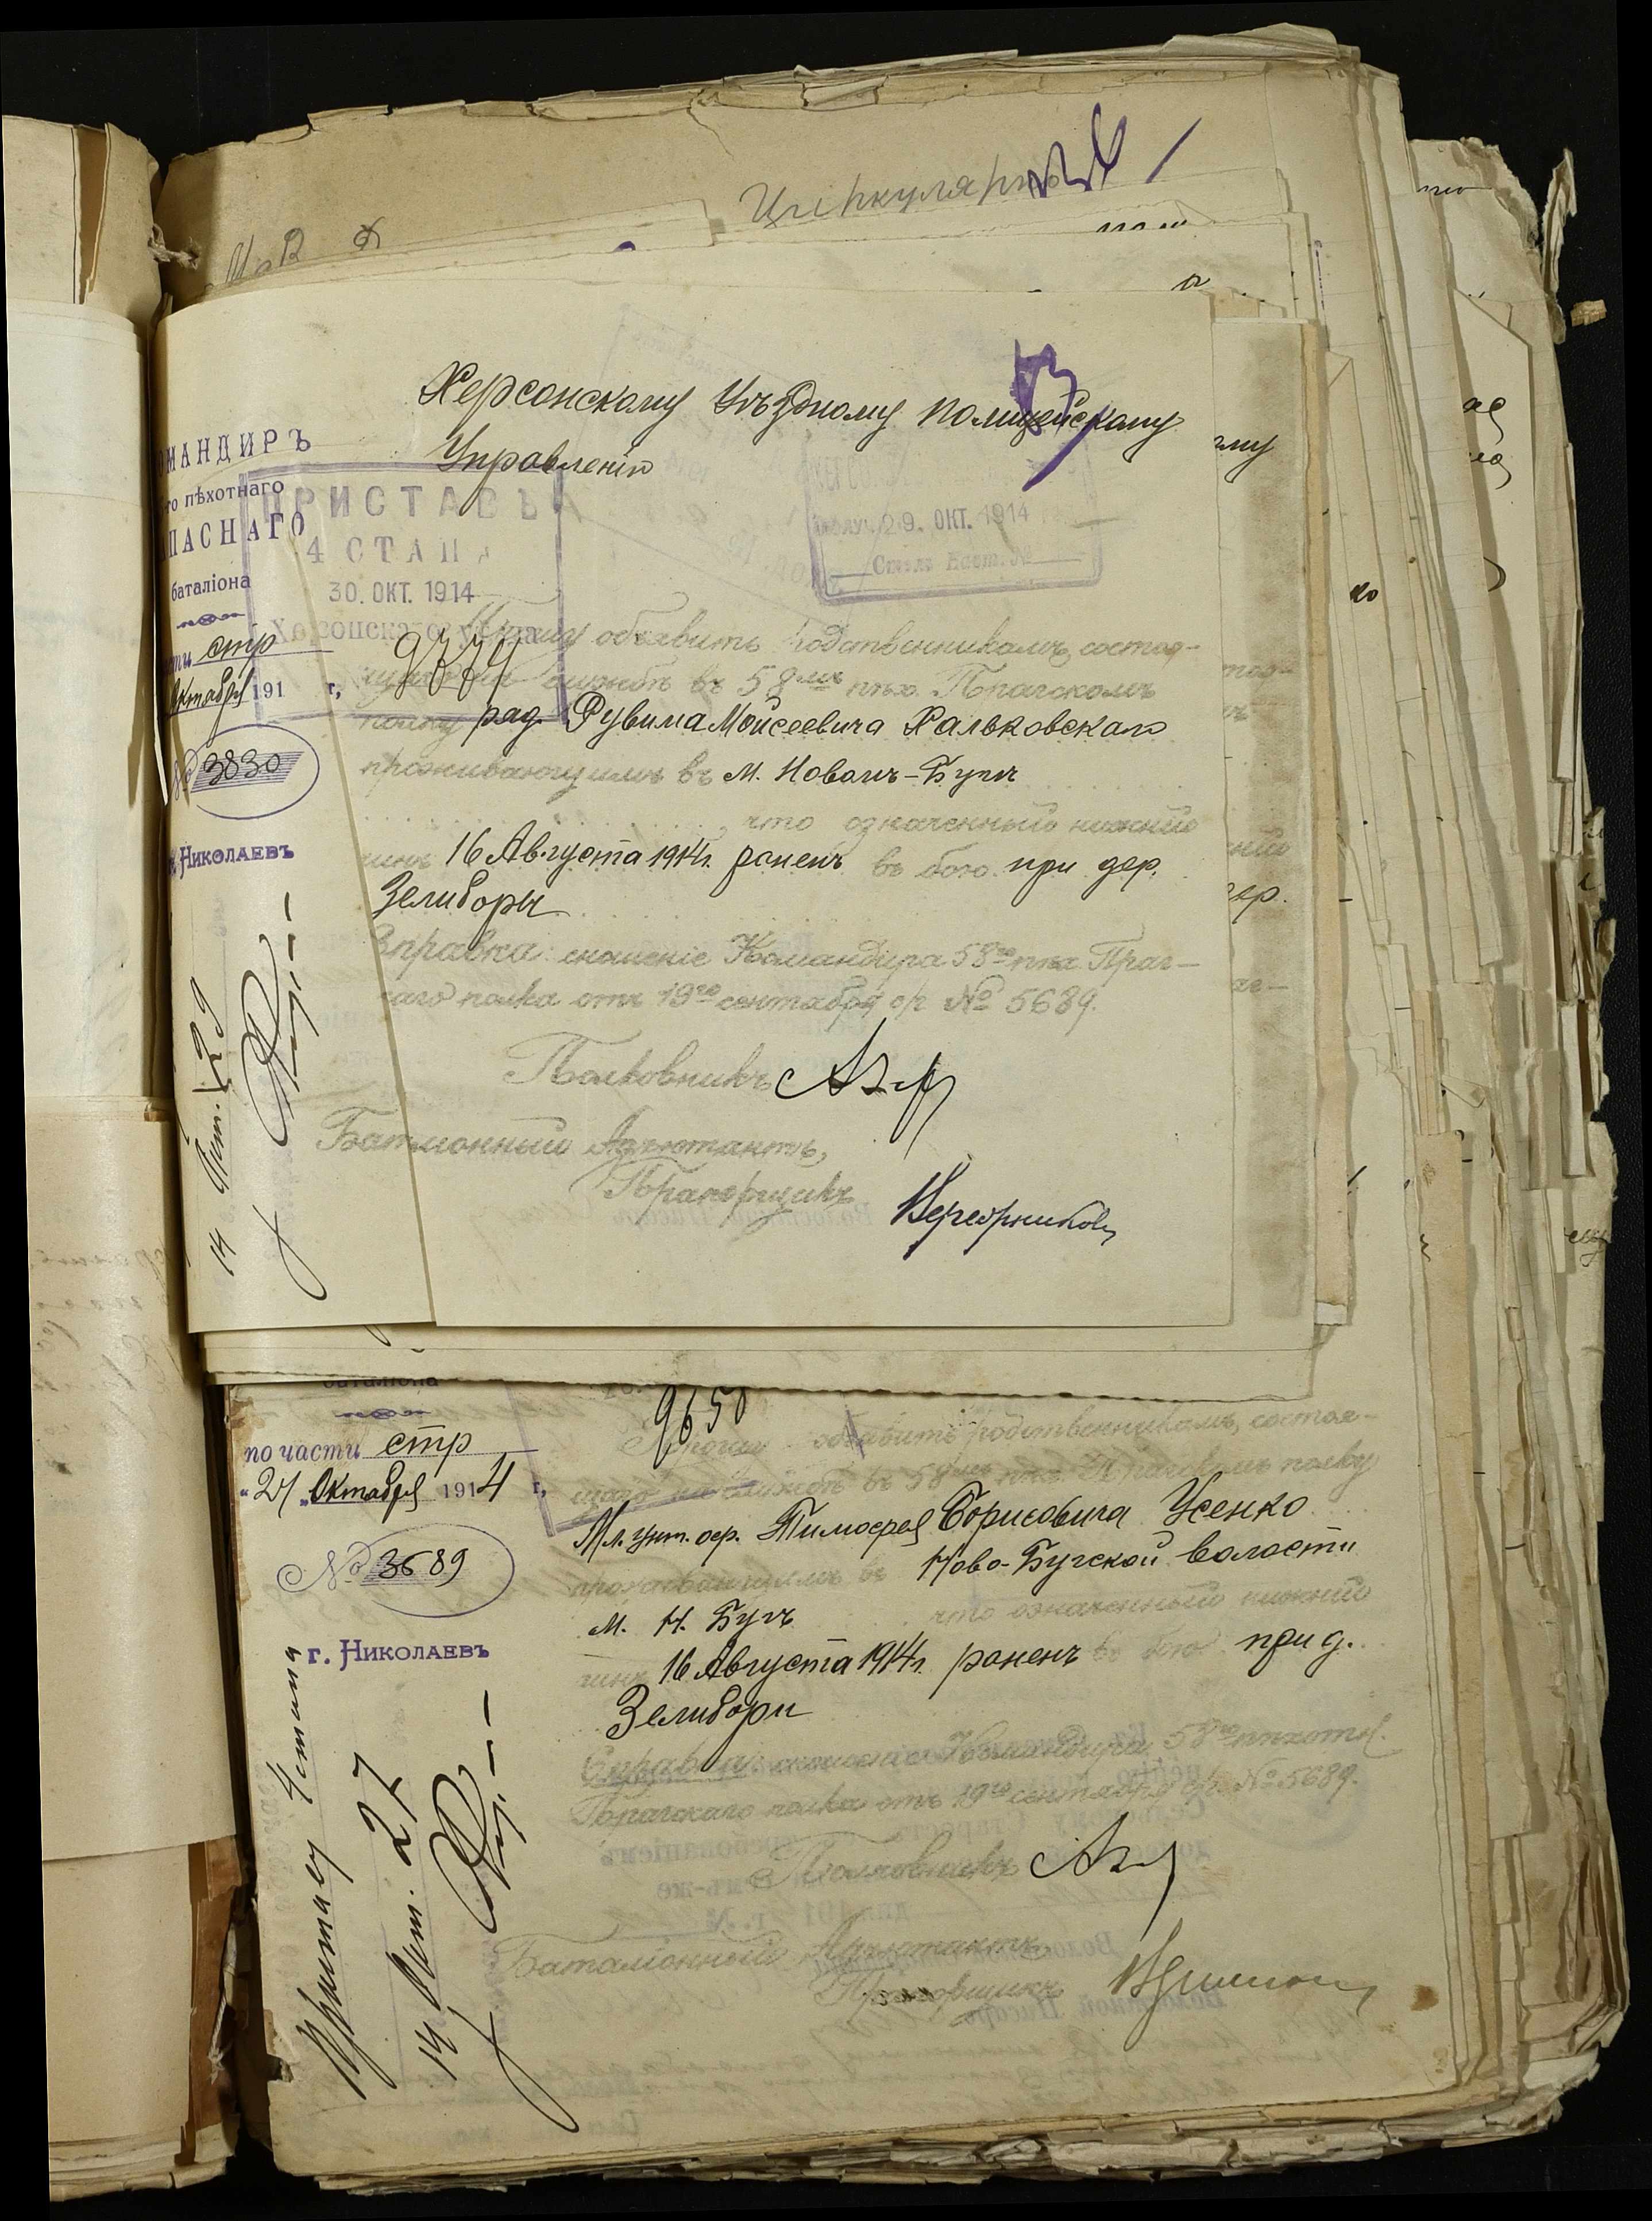 Циркулярн
Херсонскому Уѣздному полицейскому
Управленію
МАНДИРЪ
го пѣхотнаго
ПАСНАГО
баталіона
ПРИСТАВЪ
4 СТАНА
30. ОКТ. 1914
29. ОКТ. 1914
сти стр
Октября 191 г.
№ 3830
г. Николаевъ
Прошу объявить родственникамъ, состоя-
щаго на службѣ въ 58мъ пѣх. Прагскомъ
полку ряд. Рувима Мойсеевича Хальковскаго
проживающимъ въ м. Новомъ-Бугѣ
, что означенный нижній
чинъ 16 Августа 1914г. раненъ въ бою при дер.
Зелиборы
Справка: сношеніе Командира 58го пѣх. Праг-
скаго полка отъ 19го сентября с/г № 5689.
Полковникъ
Баталіонный Адъютантъ,
Прапорщикъ
баталіона
9650
по части стр
"27" Октября 1914 г.
№ 3689
г. Николаевъ
Прошу объявить родственникамъ, состоя-
щаго на службѣ въ 58мъ пѣх. Прагскомъ полку
Мл. унт. оф. Тимофея Борисовича Усенко
проживающимъ въ Ново-Бугской волости
м. Н. Бугъ что означенный нижній
чинъ 16 Августа 1914г. раненъ въ бою при д.
Зелибори
Справка: сношеніе Командира 58го пѣхотн.
Прагскаго полка отъ 19го сентября с/г. № 5689.
Полковникъ
Баталіонный Адъютантъ
Прапорщикъ
Приставу 4 стана